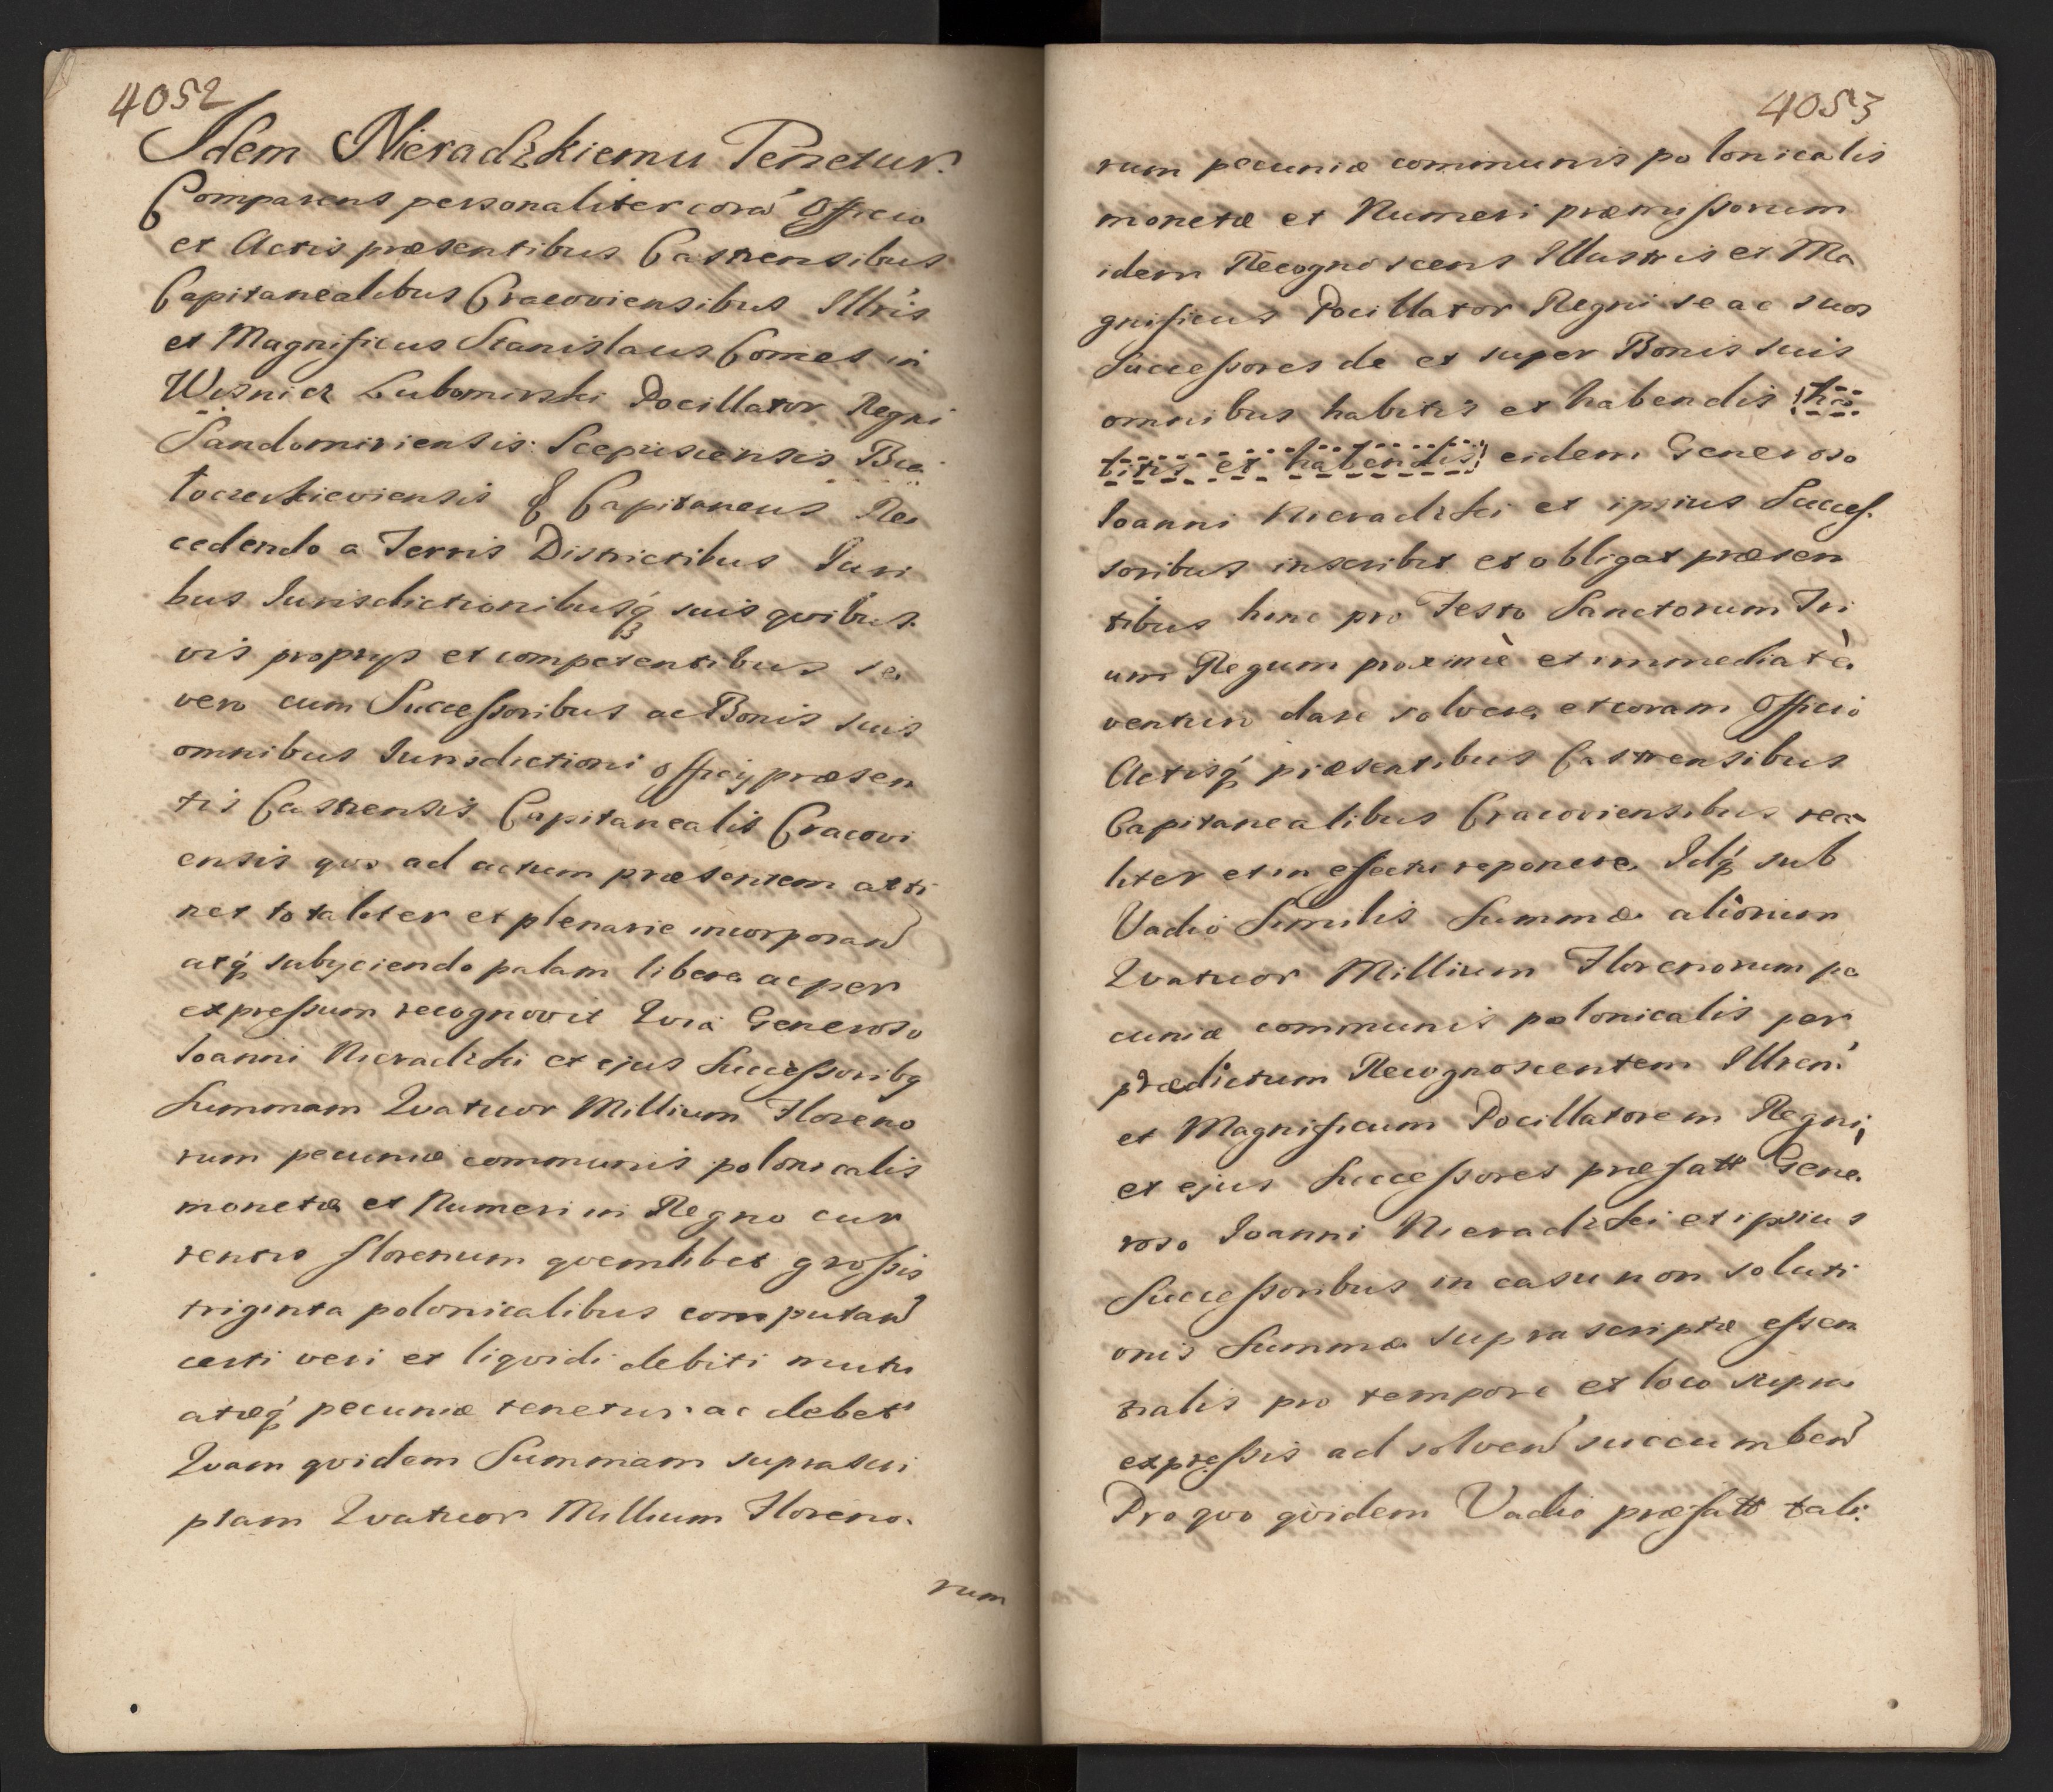 4052
Idem Nieradzkiemu Tenetur.
Comparens personaliter corã Officio
et Actis præsentibus Castrensibus
Capitanealibus Cracoviensibus Illris
et Magnificus Stanislaus Comes in
Wisnicz Lubomirski Pocillator Regni
Sandomiriensis Scepusiensis
Capitaneus Re
cedendo a Terris Districtibus Juri
bus Jurisdictionibusq́ suis qvibus
vis proprys et competentibus se
vero cum Successoribus ac Bonis suis
omnibus Jurisdictioni officy præsen
tis Castrensis Capitanealis Cracovi
ensis qvo ad actum præsentem atti
net totaliter et plenarie incorporan̄
atq́ subyciendo palam libere ac per
expressum recognovit Qvia Generoso
Joanni Nieradzki et ejus Successoribq
Summam Qvatuor Millium Floreno
rum pecuniæ communis polonicalis
monetæ et Numeri in Regno cur
rentis florenum qvemlibet grossis
triginta polonicalibus computan̄
certi veri et liqvidi debiti mutu
atæq́ pecuniæ tenetur ac debet
Qvam qvidem Summam suprascri
ptam Qvatuor Millium Floreno.
rum
4053
rum pecuniæ communis polonicalis
monetæ et Numeri præmissorum
idem Recognoscens Illustris et Ma
gnificus Pocillator Regni se ac suos
Successores de et super Bonis suis
omnibus habitis et habendis ha
bitis et habendis eidem Generoso
Joanni Nieradzki et ipsius Succes.
soribus inscribit et obligat præsen
tibus hinc pro Festo Sanctorum Tri
um Regum proxime̍ et immediate̍
venturo dare solvere et coram Officio
Actisq́ præsentibus Castrensibus
Capitanealibus Cracoviensibus rea
liter et in effectu reponere Idq́ sub
Vadio Similis Summæ aliorum
Qvatuor Millium Florenorum pe
cuniæ communis polonicalis per
prædictum Recognoscentem Illrem
et Magnificum Pocillatorem Regni
et ejus Successores præfatt Gene
roso Joanni Nieradzki et ipsius
Successoribus in casu non soluti
onis Summæ supra scriptæ essen
tialis pro tempore et loco supra
expressis ad solven̄ succumben̄
Pro qvo qvidem Vadio præfatt tali.